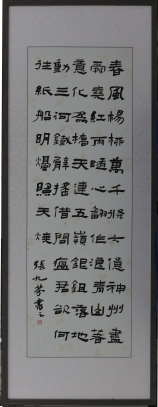 春風楊柳萬千條六億神州盡
舜堯紅雨隨心翻作浪青山著
意化為橋天連五嶺銀鋤落地
動三河鐵臂搖借問瘟君欲何
往紙船明燭照天燒